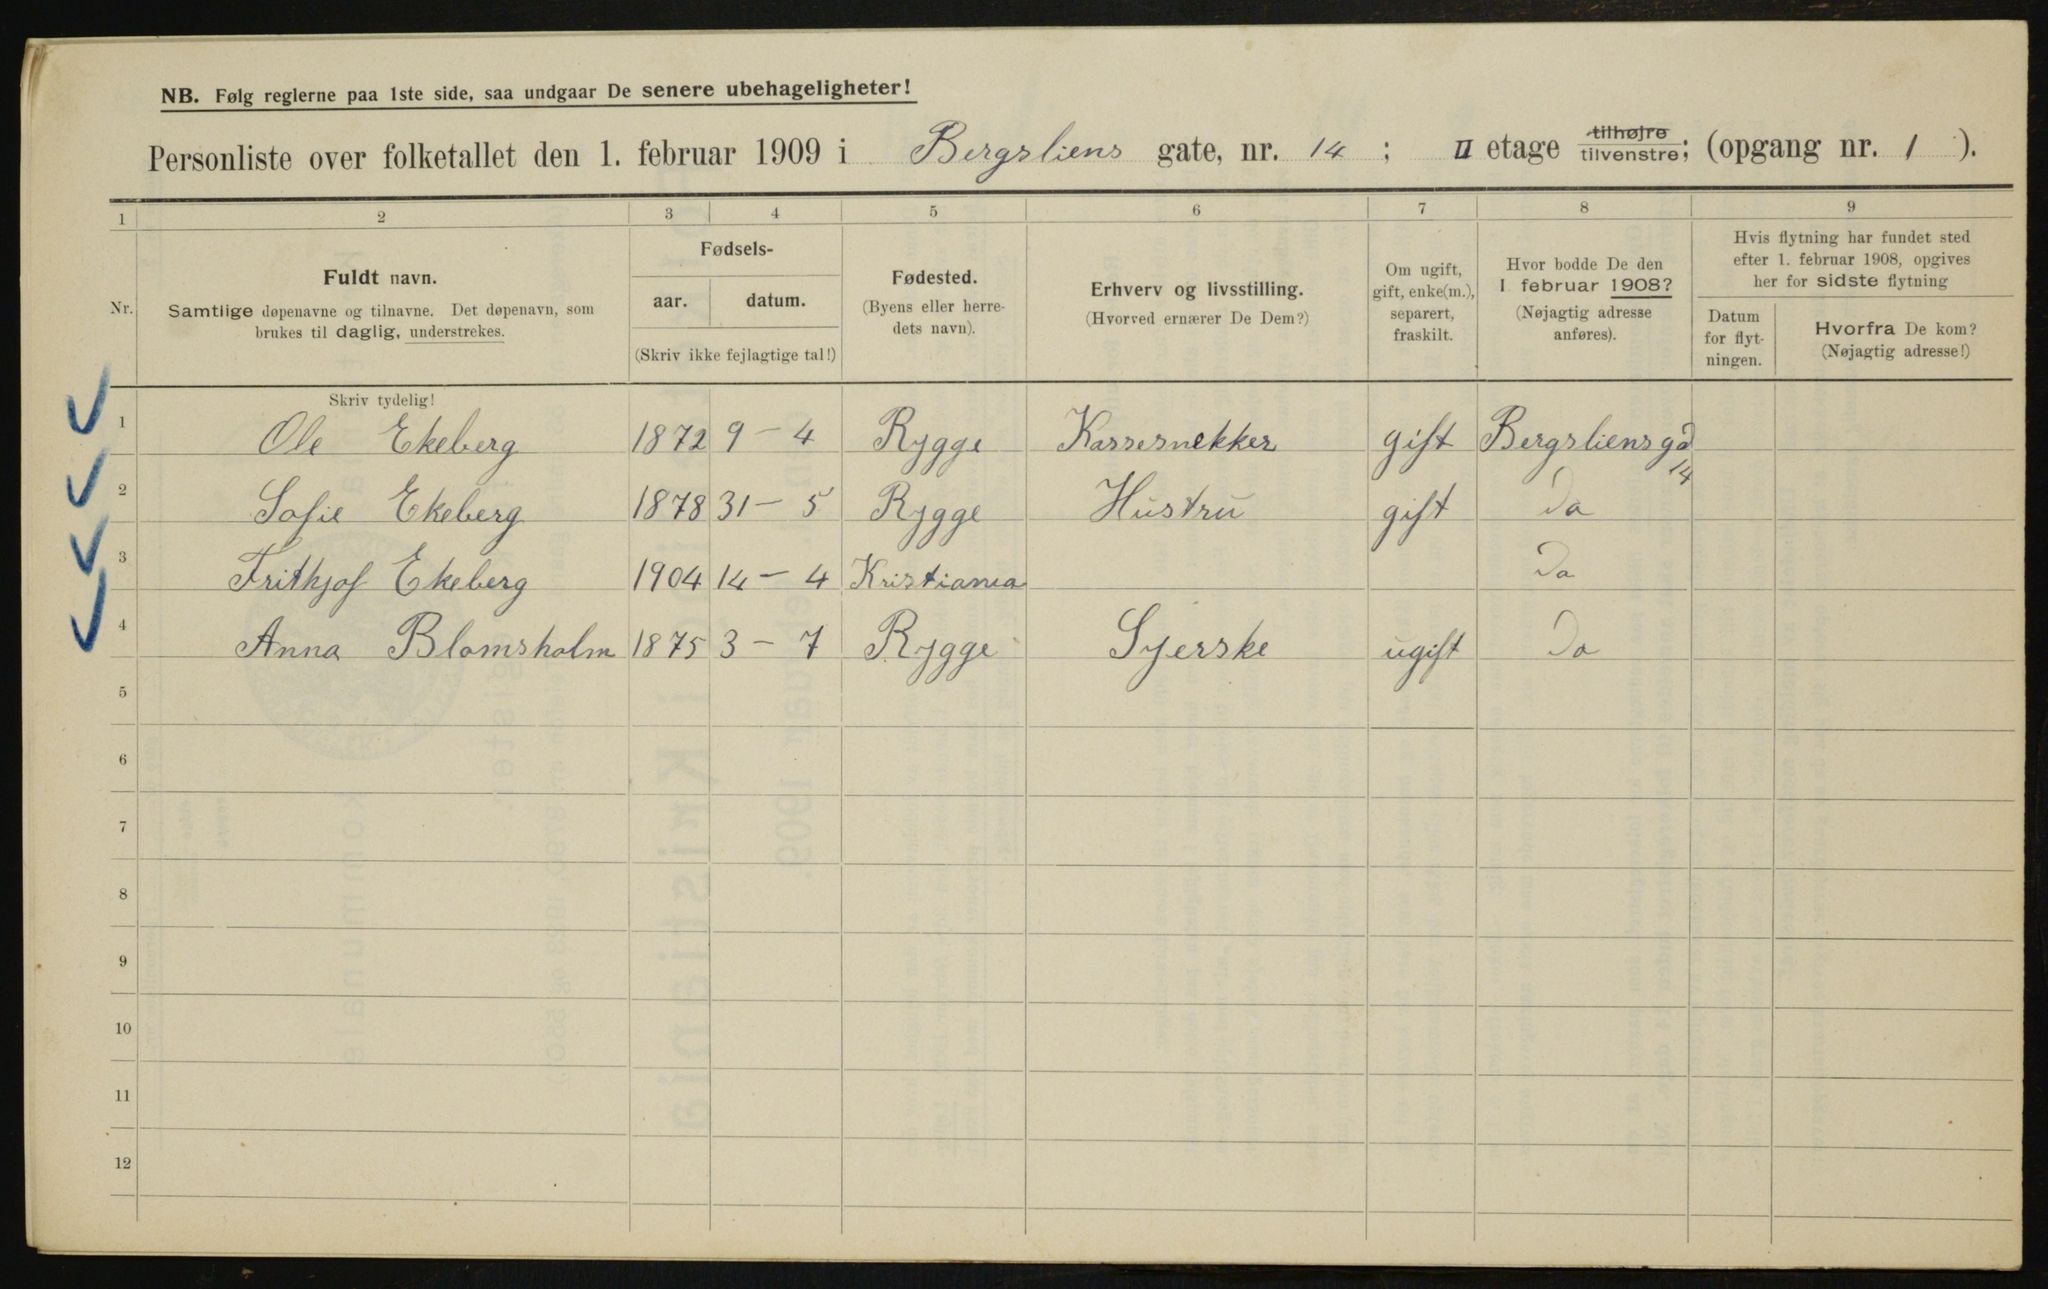 NB. Følg reglerne paa 1ste side, saa undgaar De senere ubehageligheter!
Personliste over folketallet den 1. februar 1909 i Bergsliens gate, nr. 14 ; II etage tilhøjre tilvenstre; (opgang nr. 1 ).
1 2 3 4 5 6 7 8 9
Nr.
Fuldt navn.
Samtlige døpenavne og tilnavne. Det døpenavn, som
brukes til daglig, understrekes.
Fødsels-
aar. datum.
(Skriv ikke fejlagtige tal!)
Fødested.
(Byens eller herre-
dets navn).
Erhverv og livsstilling.
(Hvorved ernærer De Dem?)
Om ugift,
gift, enke(m.),
separert,
fraskilt.
Hvor bodde De den
1. februar 1908?
(Nøjagtig adresse
anføres).
Hvis flytning har fundet sted
efter 1. februar 1908, opgives
her for sidste flytning
Datum
for flyt-
ningen.
Hvorfra De kom?
(Nøjagtig adresse!)
Skriv tydelig!
1 Ole Ekeberg 1872 9 - 4 Rygge Kassesnekker gift Bergsliensgd
14
2 Sofie Ekeberg 1878 31 - 5 Rygge Hustru gift Do
3 Frithjof Ekeberg 1904 14 - 4 Kristiania Do
4 Anna Blomsholm 1875 3 - 7 Rygge Syerske ugift Do
5
6
7
8
9
10
11
12